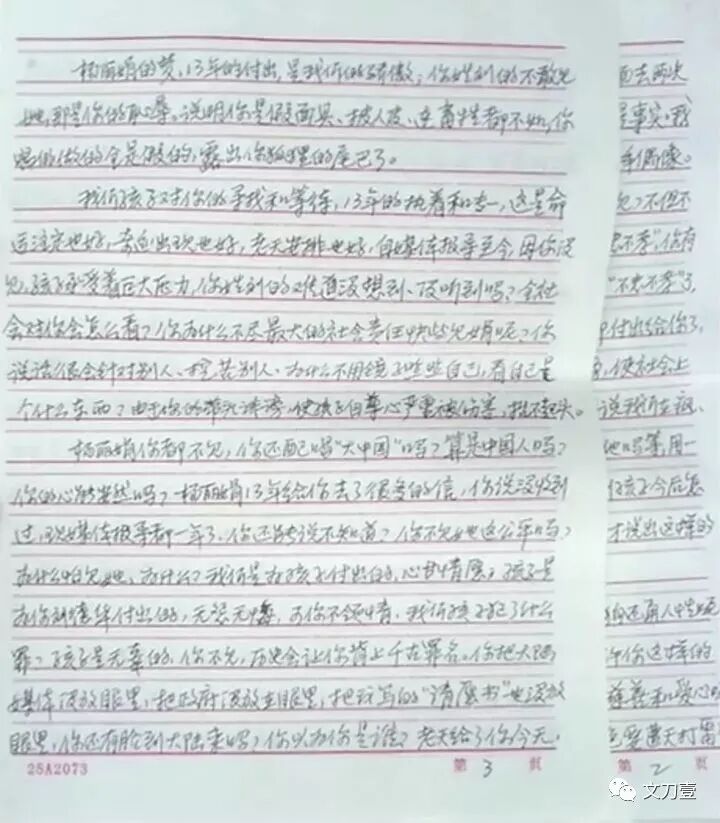 杨丽娟的梦,13年的付出,是我们的骄傲,你姓刘的不敢见
她,那是你的耻辱。说明你是假面具、披人皮、连畜牲都不如,你
唱的做的全是假的,露出你狐狸的尾巴了。
我们孩子对你的寻找和等待,13年的执着和专一,这是命
运注定也好,奇迹出现也好,老天安排也好,自媒体报导至今,因你没
见,孩子承受着巨大压力,你姓刘的难道没想到、没听到吗?全社
会对你会怎么看?你为什么不尽最大的社会责任快些见娟呢?你
说话很会针对别人、挖苦别人、为什么不用镜子照照自己,看自己是
个什么东西?由于你的 使孩子自尊心严重被伤害,抬不起头。
杨丽娟你都不见,你还配唱“大中国”吗?算是中国人吗?
你的心能安然吗?杨丽娟13年给你去了很多的信,你说没收到
过,现媒体报导都一年了,你还能说不知道?你不见她这公平吗?
为什么怕见她,为什么?我们是为孩子付出的,心甘情愿,孩子是
为你刘德华付出的,无怨无悔,可你不领情,我们孩子犯了什么
罪?孩子是无辜的,你不见,历史会让你背上千古罪名。你把大陆
媒体没放眼里,把政府没放在眼里,把我写的“请愿书”也没放
眼里,你还有脸到大陆来吗?你以为你是谁?老天给了你今天,
25A2073
第 3 页
面去两次
是事实,我
偶像。
见?不但不
忠不孝”,你有
“不忠不孝”了,
付出给你了,
,使社会上
说我们
她吗等,用一
孩子今后怎
才说出这样的
你这样的
慈善和爱心
要遭天打雷
第 2 页
文刀壹